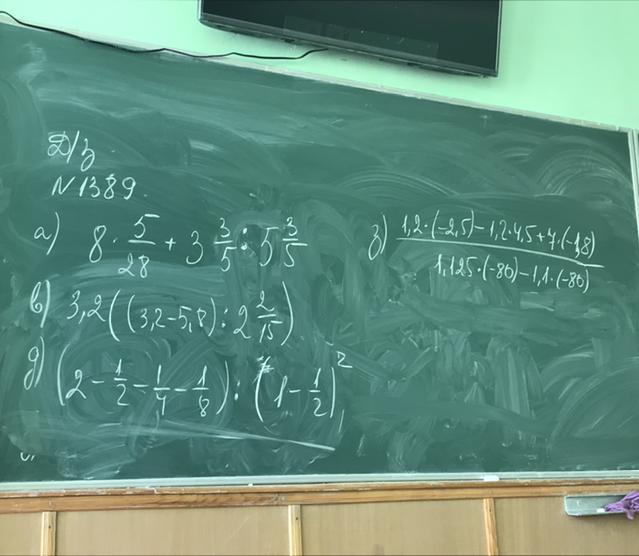 Д/з
N 1389.
а) 8 · 5/28 + 3 3/5 : 5 3/5
в) 3,2((3,2-5,8) : 2 2/15)
д) (2 - 1/2 - 1/4 - 1/8) : (1 - 1/2)²
з) (1,2·(-2,5) - 1,2·4,5 + 4·(-1,8)) / (1,125·(-80) - 1,1·(-80))